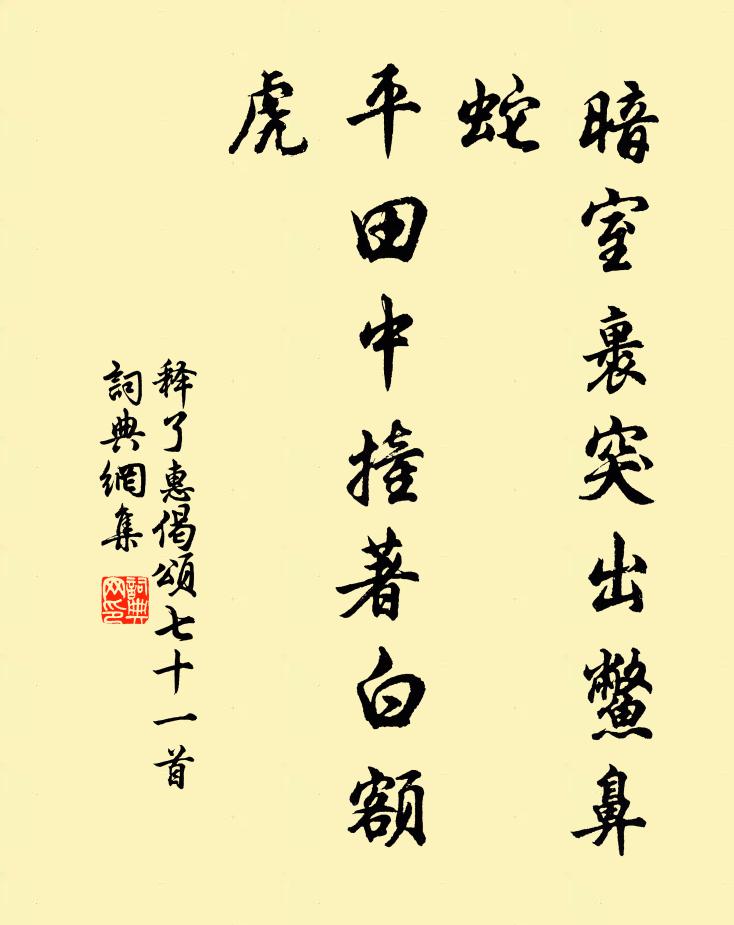 暗室裹突出鳖鼻
蛇
平田中撞著白额
虎
释了惠偈颂七十一首
詞典網集
詞典网印